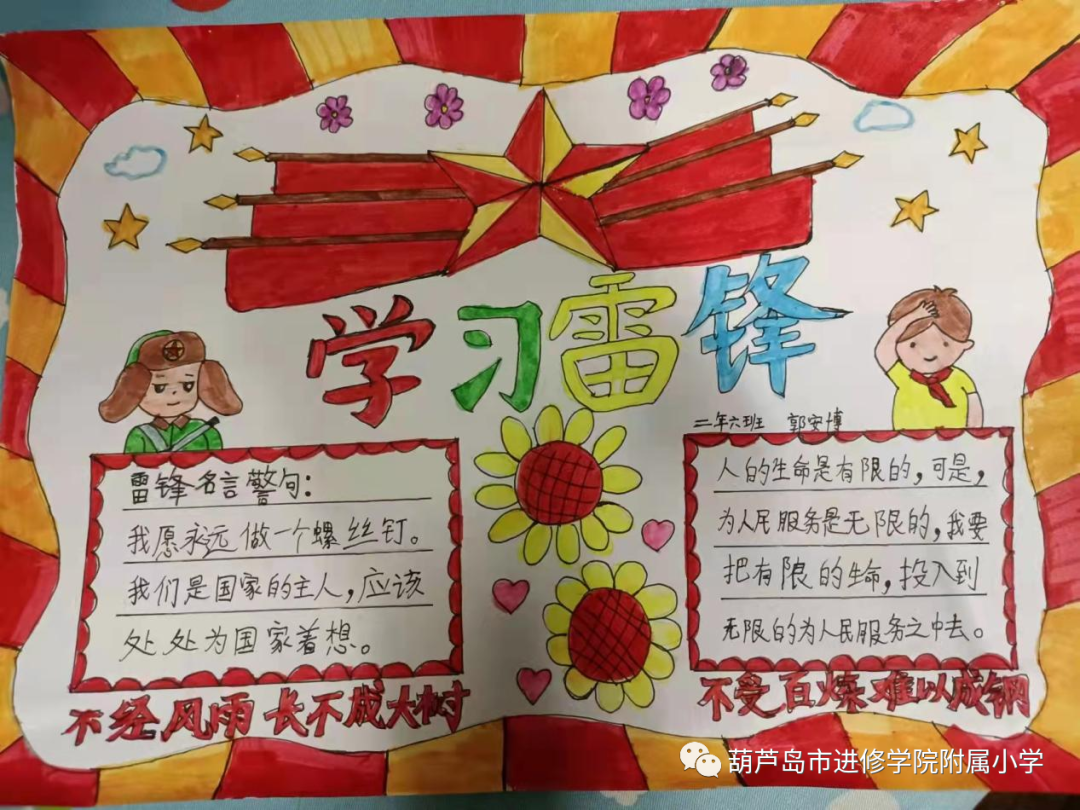 学习雷锋
二年六班 郭安博
雷锋名言警句：
我愿永远做一个螺丝钉。
我们是国家的主人，应该
处处为国家着想。
人的生命是有限的，可是，
为人民服务是无限的，我要
把有限的生命，投入到
无限的为人民服务之中去。
不经风雨长不成大树
不受百炼难以成钢
葫芦岛市进修学院附属小学